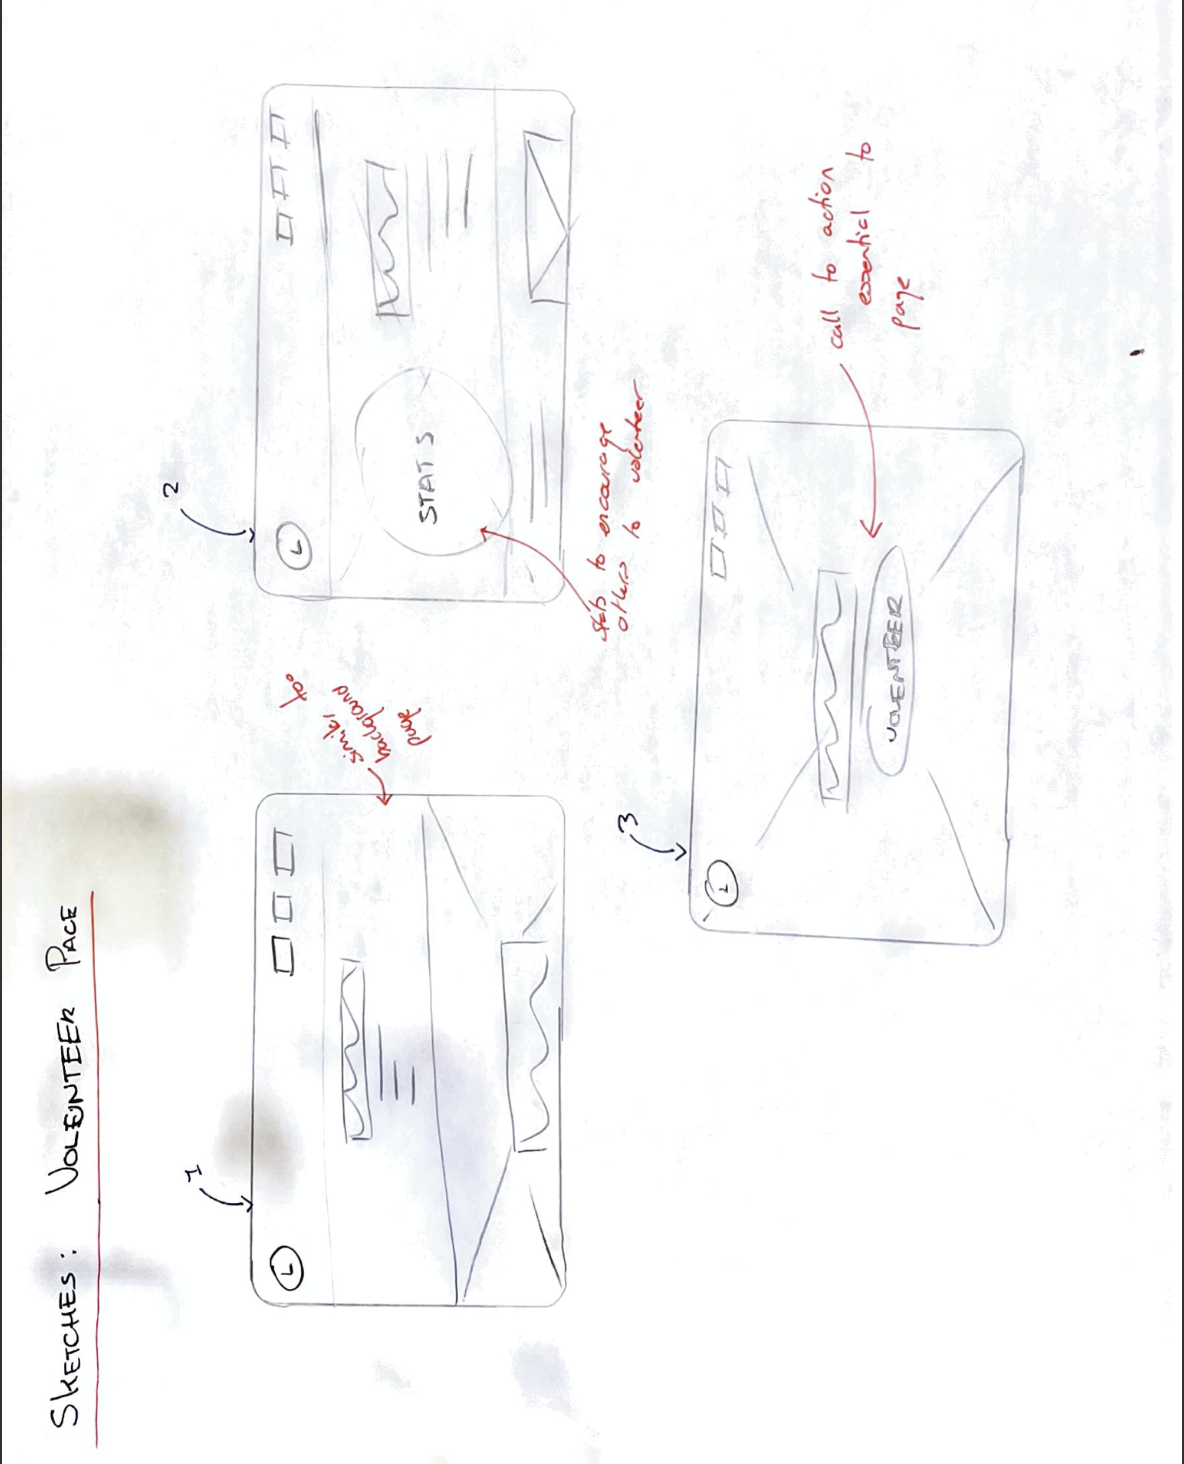 SKETCHES: VOLUNTEER PAGE
1
L
similar to:
background
page
2
L
STATS
stats to encourage
others to volenteer
3
L
VOLENTEER
call to action
essential to
page